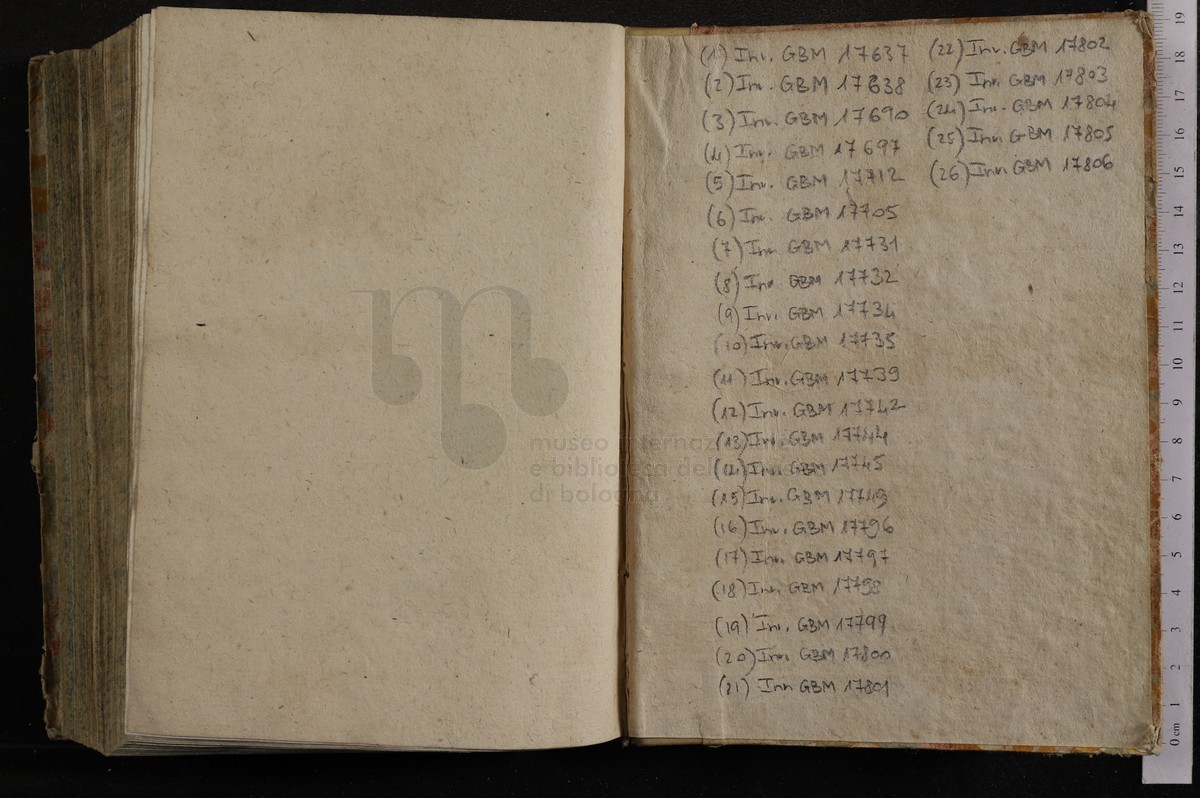 (1) Inv. GBM 17637
(2) Inv. GBM 17638
(3) Inv. GBM 17690
(4) Inv. GBM 17697
(5) Inv. GBM 17712
(6) Inv. GBM 17705
(7) Inv. GBM 17731
(8) Inv GBM 17732
(9) Inv. GBM 17734
(10) Inv. GBM 17735
(11) Inv. GBM 17739
(12) Inv. GBM 17742
(13) Inv. GBM 17744
(14) Inv. GBM 17745
(15) Inv. GBM 17749
(16) Inv. GBM 17796
(17) Inv. GBM 17797
(18) Inv. GBM 17798
(19) Inv. GBM 17799
(20) Inv. GBM 17800
(21) Inv GBM 17801
(22) Inv. GBM 17802
(23) Inv. GBM 17803
(24) Inv. GBM 17804
(25) Inv. GBM 17805
(26) Inv. GBM 17806
museo internaz
e biblioteca del
di bologna
19
18
17
16
15
14
13
12
11
10
9
8
7
6
5
4
3
2
1
0 cm